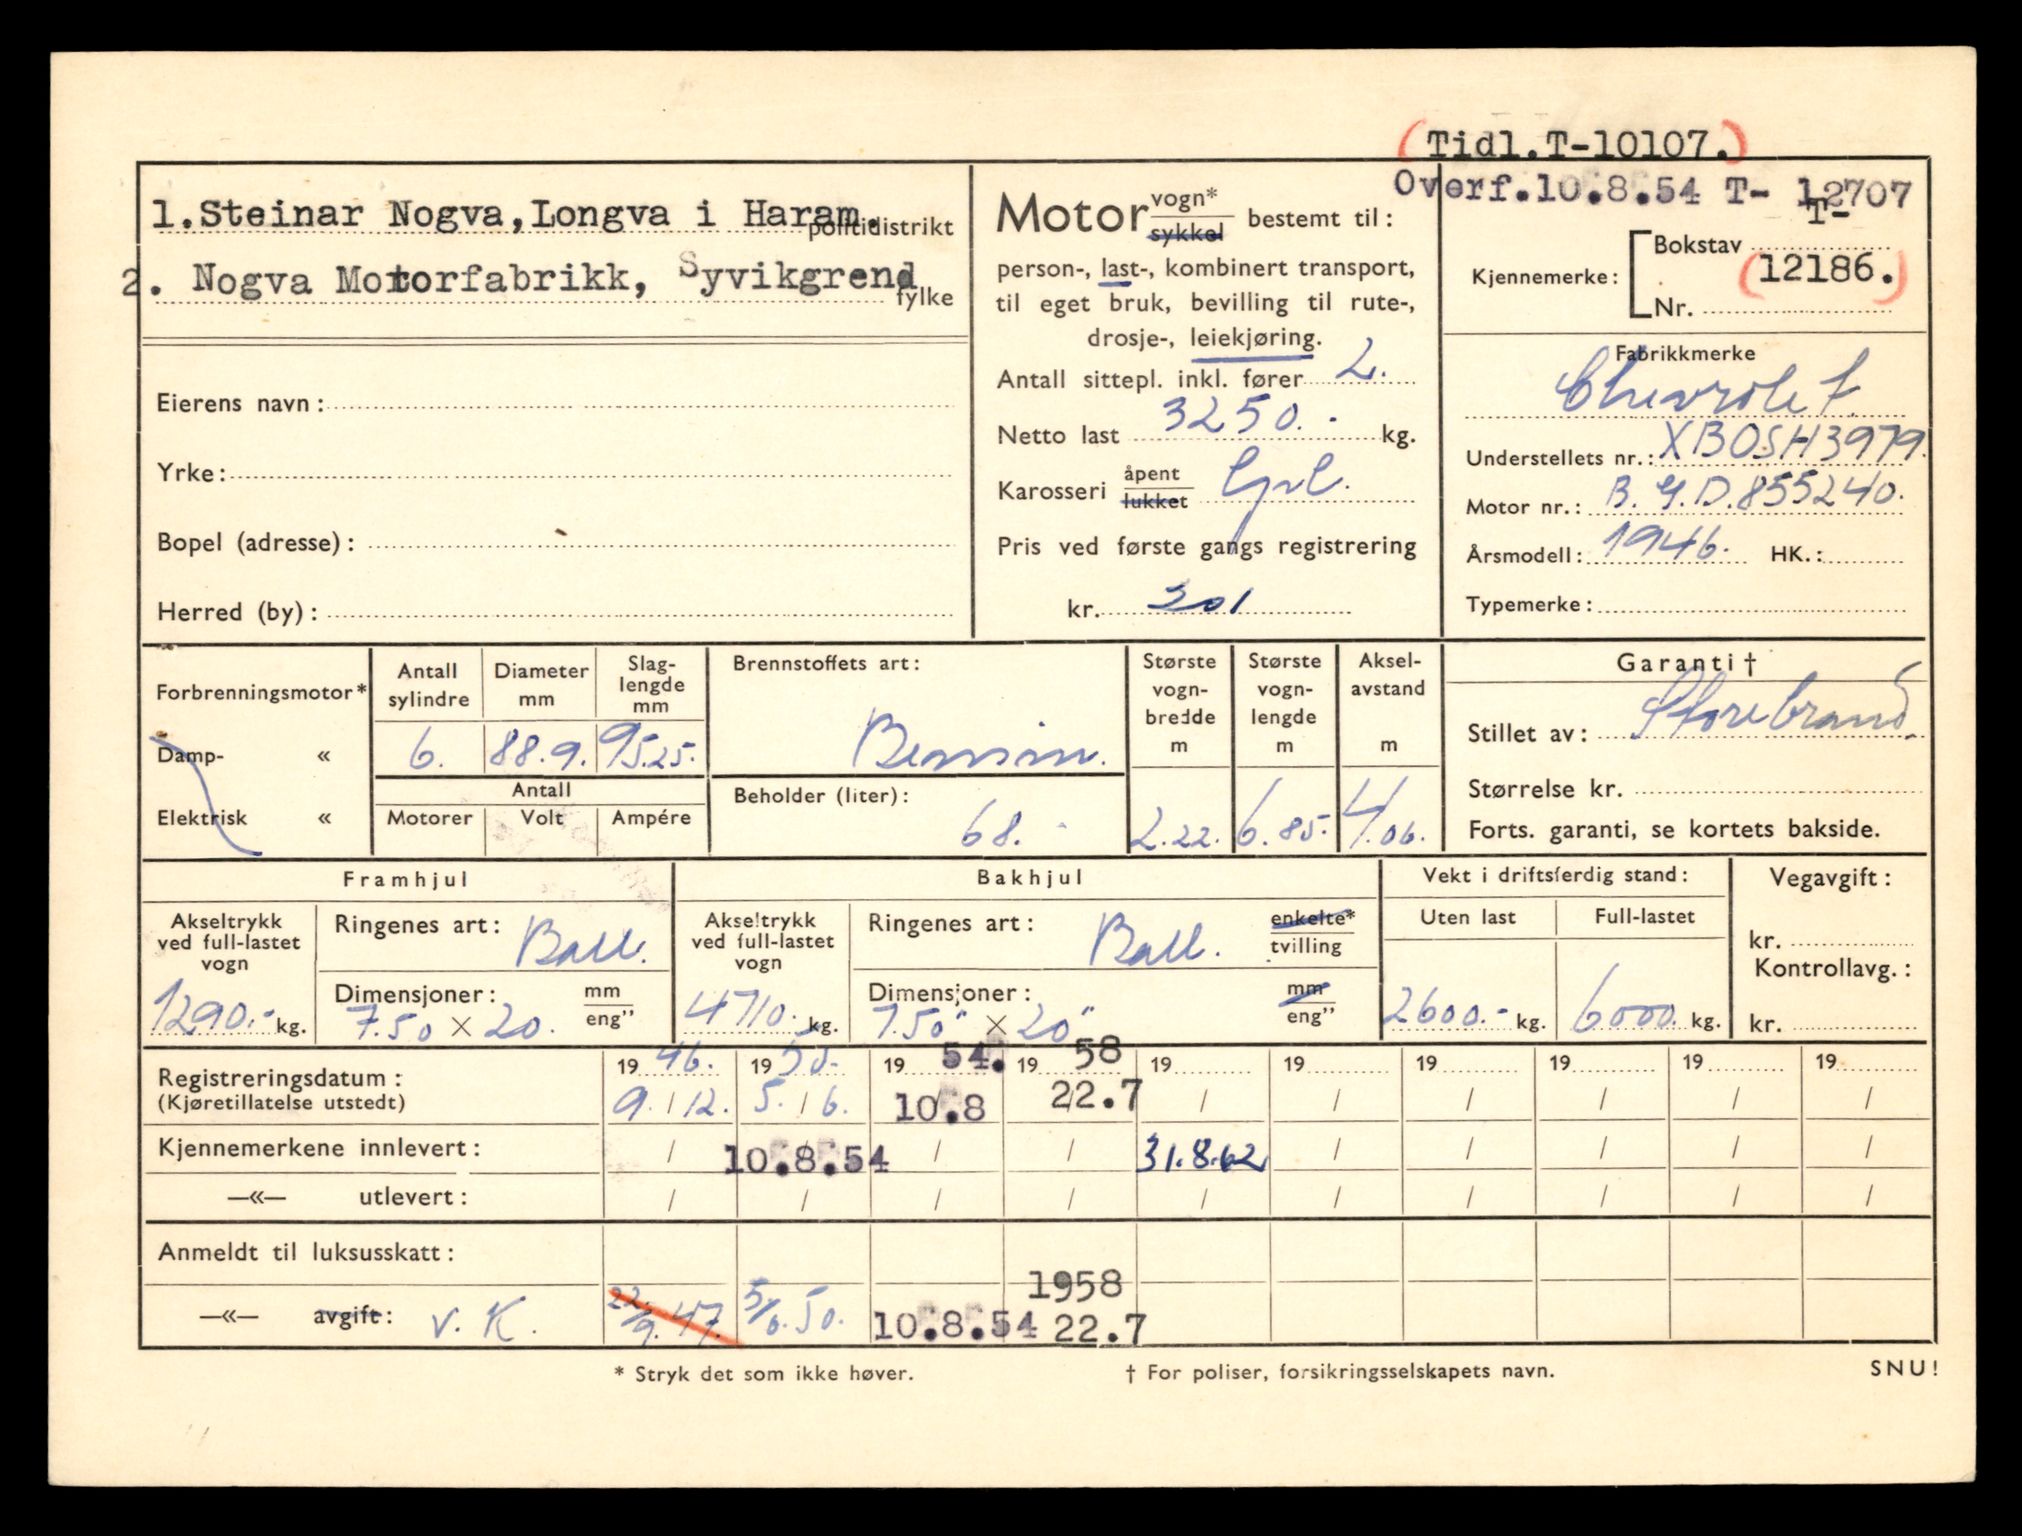 (Tidl.T-10107.)
Overf.10.8.54 T- 12707
1.Steinar Nogva,Longva i Haram.
politidistrikt
2. Nogva Motorfabrikk, Syvikgrend
fylke
Eierens navn:
Yrke:
Bopel (adresse):
Herred (by):
Motor vogn* / sykkel bestemt til:
person-, last-, kombinert transport,
til eget bruk, bevilling til rute-,
drosje-, leiekjøring.
Antall sittepl. inkl. fører 2.
Netto last 3250.- kg.
Karosseri åpent / lukket
Pris ved første gangs registrering
kr. 301
Kjennemerke: Bokstav T-
Nr. (12186.)
Fabrikkmerke
Chevrolet.
Understellets nr.: XBOSH3979.
Motor nr.: B.G.D.855240.
Årsmodell: 1946. HK.:
Typemerke:
Forbrenningsmotor*
Damp- «
Elektrisk «
Antall sylindre
6.
Diameter mm
88.9.
Slag-lengde mm
95.25.
Antall
Motorer Volt Ampére
Brennstoffets art:
Bensin.
Beholder (liter):
68.-
Største vogn-bredde m
2.22.
Største vogn-lengde m
6.85.
Aksel-avstand m
4.06.
Garanti †
Stillet av: Storebrand.
Størrelse kr.
Forts. garanti, se kortets bakside.
Framhjul
Akseltrykk ved full-lastet vogn
1290.- kg.
Ringenes art: Ball.
Dimensjoner: mm / eng"
7.50 × 20.
Bakhjul
Akseltrykk ved full-lastet vogn
4710. kg.
Ringenes art: Ball. enkelte* / tvilling
Dimensjoner: mm / eng"
750" × 20"
Vekt i driftsferdig stand:
Uten last Full-lastet
2600.- kg. 6000. kg.
Vegavgift:
kr.
Kontrollavg.:
kr.
19 46. 19 50. 19 54. 19 58 19 19 19 19 19 19
Registreringsdatum:
(Kjøretillatelse utstedt) 9. / 12. 5. / 6. 10.8 22.7 / / / / / /
Kjennemerkene innlevert: / 10.8.54 / / 31.8.62 / / / / /
—«— utlevert: / / / / / / / / / /
Anmeldt til luksusskatt:
—«— avgift: v. K. 22/9. 47. 5/6. 50. 10.8.54 1958 22.7
* Stryk det som ikke høver. † For poliser, forsikringsselskapets navn. SNU!